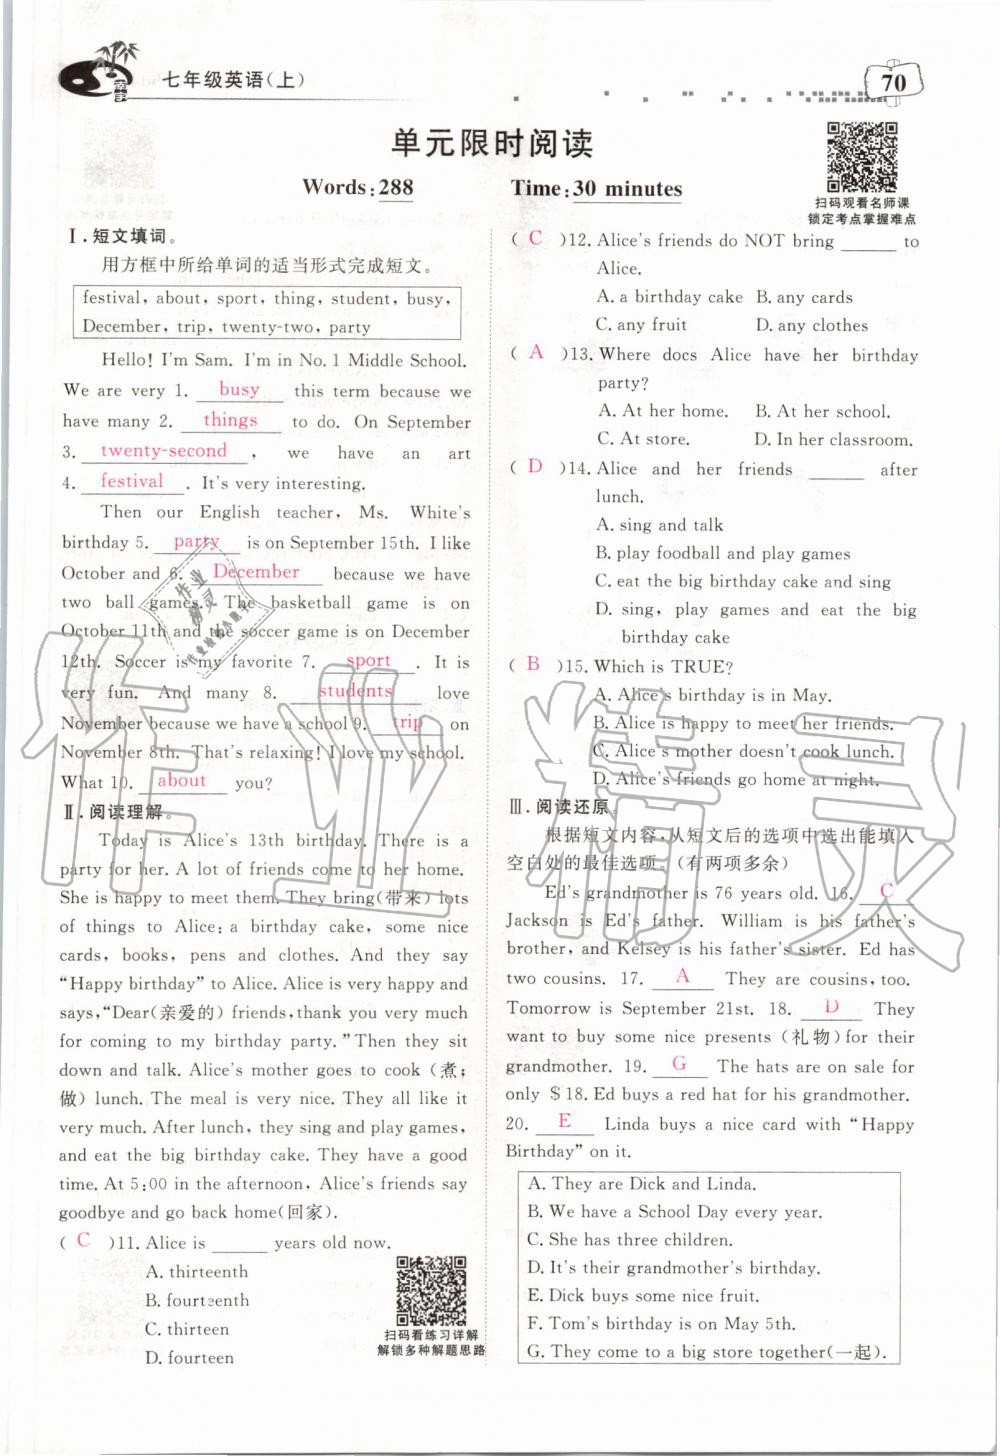 七年级英语(上)
70
单元限时阅读
Words:288 Time:30 minutes
扫码观看名师课
锁定考点掌握难点
Ⅰ.短文填词。
用方框中所给单词的适当形式完成短文。
festival, about, sport, thing, student, busy,
December, trip, twenty-two, party
Hello! I'm Sam. I'm in No. 1 Middle School.
We are very 1. busy this term because we
have many 2. things to do. On September
3. twenty-second , we have an art
4. festival . It's very interesting.
Then our English teacher, Ms. White's
birthday 5. party is on September 15th. I like
October and 6. December because we have
two ball games. The basketball game is on
October 11th and the soccer game is on December
12th. Soccer is my favorite 7. sport . It is
very fun. And many 8. students love
November because we have a school 9. trip on
November 8th. That's relaxing! I love my school.
What 10. about you?
Ⅱ.阅读理解。
Today is Alice's 13th birthday. There is a
party for her. A lot of friends come to her home.
She is happy to meet them. They bring(带来) lots
of things to Alice: a birthday cake, some nice
cards, books, pens and clothes. And they say
“Happy birthday” to Alice. Alice is very happy and
says,“Dear(亲爱的) friends, thank you very much
for coming to my birthday party.”Then they sit
down and talk. Alice's mother goes to cook (煮;
做) lunch. The meal is very nice. They all like it
very much. After lunch, they sing and play games,
and eat the big birthday cake. They have a good
time. At 5:00 in the afternoon, Alice's friends say
goodbye and go back home(回家).
( C )11. Alice is ______ years old now.
A. thirteenth
B. fourteenth
C. thirteen
D. fourteen
扫码看练习详解
解锁多种解题思路
( C )12. Alice's friends do NOT bring ______ to
Alice.
A. a birthday cake B. any cards
C. any fruit D. any clothes
( A )13. Where docs Alice have her birthday
party?
A. At her home. B. At her school.
C. At store. D. In her classroom.
( D )14. Alice and her friends ______ after
lunch.
A. sing and talk
B. play foodball and play games
C. eat the big birthday cake and sing
D. sing, play games and eat the big
birthday cake
( B )15. Which is TRUE?
A. Alice's birthday is in May.
B. Alice is happy to meet her friends.
C. Alice's mother doesn't cook lunch.
D. Alice's friends go home at night.
Ⅲ.阅读还原
根据短文内容,从短文后的选项中选出能填入
空白处的最佳选项。(有两项多余)
Ed's grandmother is 76 years old. 16. C
Jackson is Ed's father. William is his father's
brother, and Kelsey is his father's sister. Ed has
two cousins. 17. A They are cousins, too.
Tomorrow is September 21st. 18. D They
want to buy some nice presents (礼物) for their
grandmother. 19. G The hats are on sale for
only $18. Ed buys a red hat for his grandmother.
20. E Linda buys a nice card with “Happy
Birthday” on it.
A. They are Dick and Linda.
B. We have a School Day every year.
C. She has three children.
D. It's their grandmother's birthday.
E. Dick buys some nice fruit.
F. Tom's birthday is on May 5th.
G. They come to a big store together(一起).
作业精灵